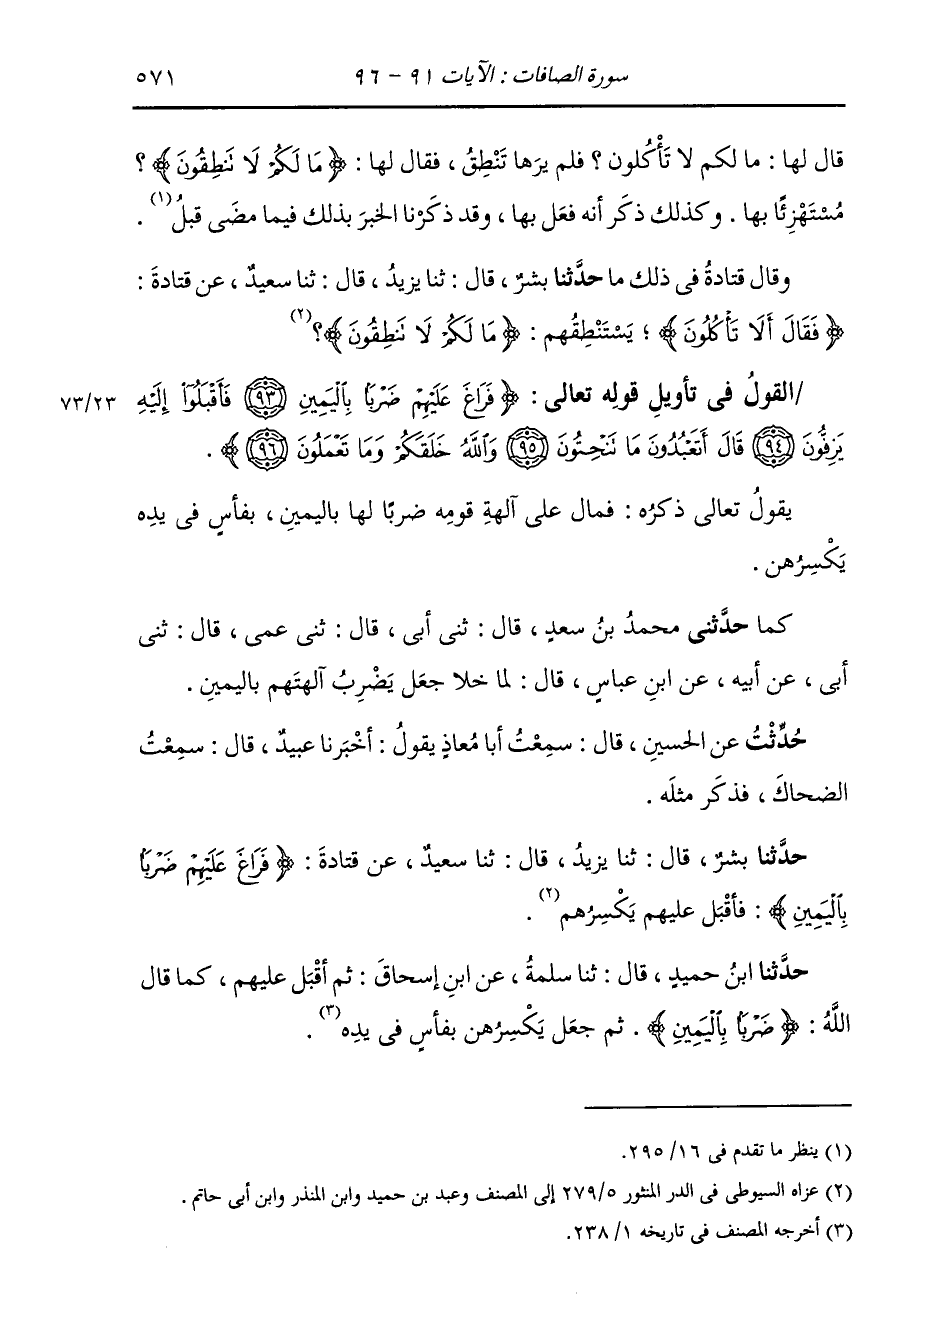 سورة الصافات : الآيات ٩١ - ٩٦ ٥٧١
قال لها : ما لكم لا تَأْكُلون ؟ فلم يرَها تَنْطِقُ ، فقال لها : ﴿ مَا لَكُمْ لَا نَنطِقُونَ ﴾ ؟
مُسْتَهْزِئًا بها . وكذلك ذكر أنه فعَل بها ، وقد ذكَرْنا الخبرَ بذلك فيما مضَى قبلُ(١) .
وقال قتادةُ فى ذلك ما حدَّثنا بشرٌ ، قال : ثنا يزيدُ ، قال : ثنا سعيدٌ ، عن قتادةَ :
﴿ فَقَالَ أَلَا تَأْكُلُونَ ﴾ ؛ يَسْتَنْطِقُهم : ﴿ مَا لَكُمْ لَا نَنطِقُونَ ﴾؟(٢)
/القولُ فى تأويلِ قولِه تعالى : ﴿ فَرَاغَ عَلَيْهِمْ ضَرْبًا بِٱلْيَمِينِ ٩٣ فَأَقْبَلُوٓا۟ إِلَيْهِ ٧٣/٢٣
يَزِفُّونَ ٩٤ قَالَ أَتَعْبُدُونَ مَا نَنْحِتُونَ ٩٥ وَٱللَّهُ خَلَقَكُمْ وَمَا تَعْمَلُونَ ٩٦ ﴾ .
يقولُ تعالى ذكرُه : فمال على آلهةِ قومِه ضربًا لها باليمينِ ، بفأسٍ فى يدِه
يَكْسِرُهن .
كما حدَّثنى محمدُ بنُ سعدٍ ، قال : ثنى أبى ، قال : ثنى عمى ، قال : ثنى
أبى ، عن أبيه ، عن ابنِ عباسٍ ، قال : لما خلا جعَل يَضْرِبُ آلهتَهم باليمينِ .
حُدِّثْتُ عن الحسينِ ، قال : سمِعْتُ أبا مُعاذٍ يقولُ : أخْبَرنا عبيدٌ ، قال : سمِعْتُ
الضحاكَ ، فذكَر مثلَه .
حدَّثنا بشرٌ ، قال : ثنا يزيدُ ، قال : ثنا سعيدٌ ، عن قتادةَ : ﴿ فَرَاغَ عَلَيْهِمْ ضَرْبًا
بِٱلْيَمِينِ ﴾ : فأقْبَل عليهم يَكْسِرُهم(٢) .
حدَّثنا ابنُ حميدٍ ، قال : ثنا سلمةُ ، عن ابنِ إسحاقَ : ثم أقْبَل عليهم ، كما قال
اللَّهُ : ﴿ ضَرْبًا بِٱلْيَمِينِ ﴾ . ثم جعَل يَكْسِرُهن بفأسٍ فى يدِه(٣) .
(١) ينظر ما تقدم فى ١٦/ ٢٩٥.
(٢) عزاه السيوطى فى الدر المنثور ٢٧٩/٥ إلى المصنف وعبد بن حميد وابن المنذر وابن أبى حاتم .
(٣) أخرجه المصنف فى تاريخه ١/ ٢٣٨.